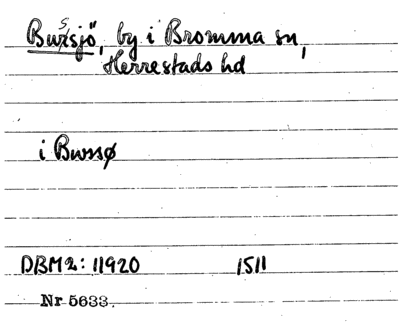 Bursjö, by i Bromma sn,
Herrestads hd
i Burssø
DBM2: 11920 1511
Nr 5633.